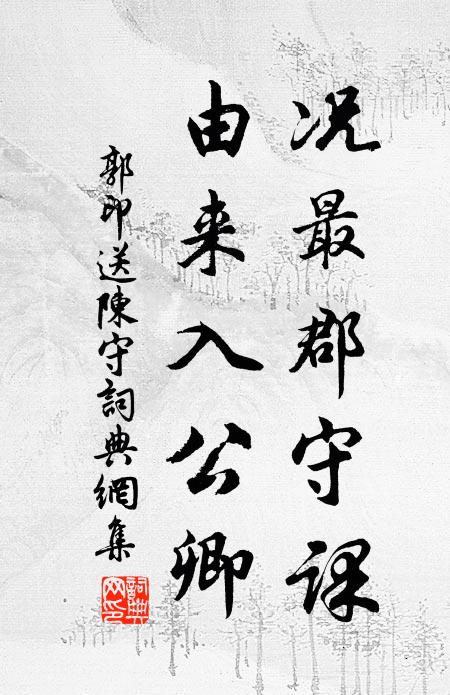 况最郡守课
由来入公卿
郭印送陳守詞典網集